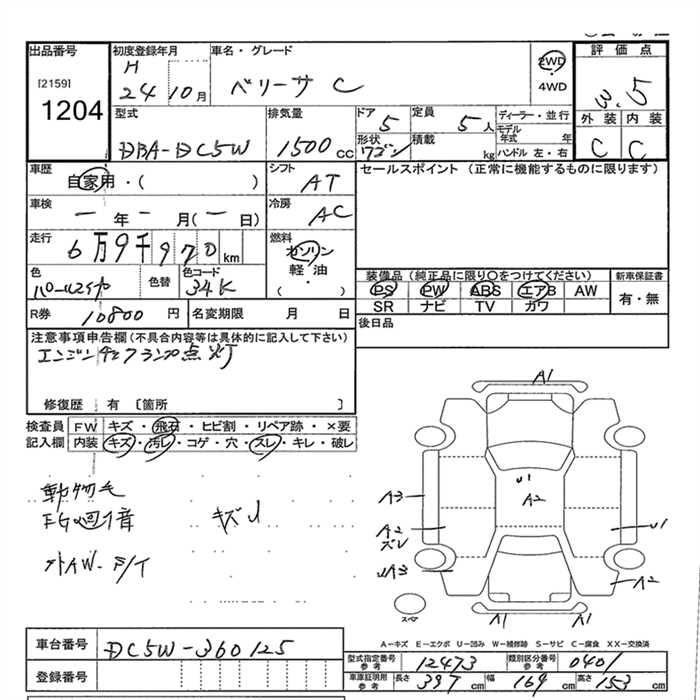 出品番号 初度登録年月 車名・グレード 評価点
[2159] H 2WD
1204 24 10月 ベリーサ C ・4WD 3.5
型式 排気量 ドア 定員 ディーラー・並行 外装 内装
DBA-DC5W 1500cc 5 5人 モデル年式 年 C C
形状 積載 ハンドル 左・右
ワゴン kg
車歴 シフト セールスポイント (正常に機能するものに限ります)
自家用・( ) AT
車検 冷房
一年一月(一日) AC
走行 燃料
6万9千970km ガソリン
軽・油
( )
色 色替 色コード 装備品(純正品に限り○をつけてください) 新車保証書
34K PS PW ABS エアB AW 有・無
SR ナビ TV カワ
R券 10800円 名変期限 月 日 後日品
注意事項申告欄(不具合内容等は具体的に記入して下さい)
点灯
修復歴 有 〔箇所 〕
検査員 FW キズ・飛石・ヒビ割・リペア跡・×要
記入欄 内装 キズ・汚レ・コゲ・穴・スレ・キレ・破レ
動物毛
キズU
外AW-
A1
U1
A2
A3
A2
ズレ
U1
UA3
A2
A1 A1
スペア
A-キズ E-エクボ U-凹み W-補修跡 S-サビ C-腐食 XX-交換済
車台番号 DC5W-360125
登録番号
型式指定番号 参考 12473 類別区分番号 参考 0401
車庫証明用 参考 長さ 397cm 幅 169cm 高さ 153cm